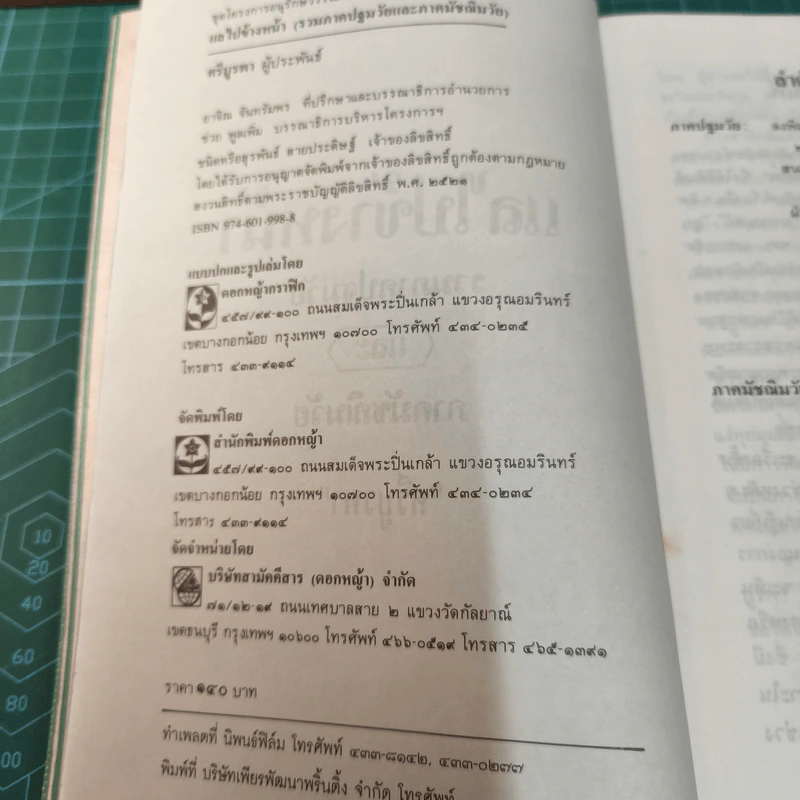 ชุดโครงการอนุรักษ์
แลไปข้างหน้า (รวมภาคปฐมวัยและภาคมัชฌิมวัย)
ศรีบูรพา ผู้ประพันธ์
อาจิณ จันทรัมพร ที่ปรึกษาและบรรณาธิการอำนวยการ
ช่วย พูลเพิ่ม บรรณาธิการบริหารโครงการฯ
ชนิดหรือสุรพันธ์ สายประดิษฐ์ เจ้าของลิขสิทธิ์
โดยได้รับการอนุญาตจัดพิมพ์จากเจ้าของลิขสิทธิ์ถูกต้องตามกฎหมาย
สงวนสิทธิ์ตามพระราชบัญญัติลิขสิทธิ์ พ.ศ. ๒๕๒๑
ISBN 974-601-998-8
แบบปกและรูปเล่มโดย
ดอกหญ้ากราฟิก
๔๕๗/๙๙-๑๐๐ ถนนสมเด็จพระปิ่นเกล้า แขวงอรุณอมรินทร์
เขตบางกอกน้อย กรุงเทพฯ ๑๐๗๐๐ โทรศัพท์ ๔๓๔-๐๒๓๕
โทรสาร ๔๓๓-๙๑๑๔
จัดพิมพ์โดย
สำนักพิมพ์ดอกหญ้า
๔๕๗/๙๙-๑๐๐ ถนนสมเด็จพระปิ่นเกล้า แขวงอรุณอมรินทร์
เขตบางกอกน้อย กรุงเทพฯ ๑๐๗๐๐ โทรศัพท์ ๔๓๔-๐๒๓๔
โทรสาร ๔๓๓-๙๑๑๔
จัดจำหน่ายโดย
บริษัทสามัคคีสาร (ดอกหญ้า) จำกัด
๗๑/๑๒-๑๙ ถนนเทศบาลสาย ๒ แขวงวัดกัลยาณ์
เขตธนบุรี กรุงเทพฯ ๑๐๖๐๐ โทรศัพท์ ๔๖๖-๐๕๑๙ โทรสาร ๔๖๕-๑๓๙๑
ราคา ๑๔๐ บาท
ทำเพลตที่ นิพนธ์ฟิล์ม โทรศัพท์ ๔๓๓-๘๑๔๒, ๔๓๓-๐๒๗๗
พิมพ์ที่ บริษัทเพียรพัฒนาพริ้นติ้ง จำกัด โทรศัพท์
ภาคปฐมวัย :
ภาคมัชฌิมวัย
10
20
40
60
80